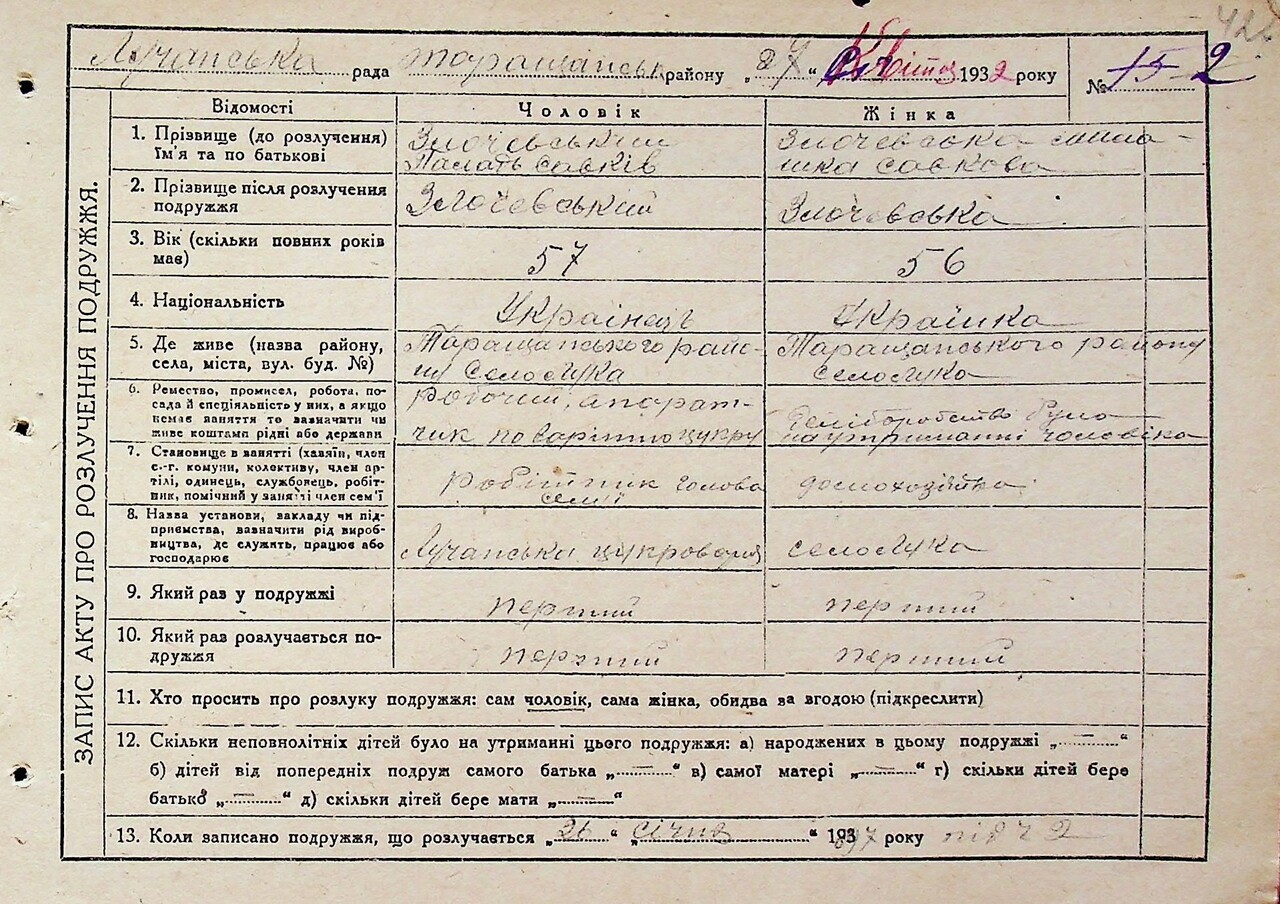 42
Лучанська рада Таращанськ району „27“ Квітня 1932 року № 15 2
ЗАПИС АКТУ ПРО РОЗЛУЧЕННЯ ПОДРУЖЖЯ.
Відомості Чоловік Жінка
1. Прізвище (до розлучення) Злочевський Злочевська
Ім'я та по батькові савків шка савкова
2. Прізвище після розлучення Злочевський Злочевська
подружжя
3. Вік (скільки повних років 57 56
має)
4. Національність Українець Українка
5. Де живе (назва району, Таращанського райо- Таращанського району
села, міста, вул. буд. №) ну село Лука село Лука
6. Ремество, промисел, робота, по- Робочий, апарат-
сада й спеціяльність у них, а якщо
немає заняття то зазначити чи чик по варінню цукру на утриманні чоловіка
живе коштами рідні або держави
7. Становище в занятті (хазяїн, член
с.-г. комуни, колективу, член ар-
тілі, одинець, службовець, робіт- Робітник голова домохозяйка
ник, помічний у занятті член сем'ї семії
8. Назва установи, закладу чи під-
приємства, зазначити рід вироб-
ництва, де служить, працює або Лучанська цукроварня село Лука
господарює
9. Який раз у подружжі перший перший
10. Який раз розлучається по- перший перший
дружжя
11. Хто просить про розлуку подружжя: сам чоловік, сама жінка, обидва за згодою (підкреслити)
12. Скільки неповнолітніх дітей було на утриманні цього подружжя: а) народжених в цьому подружжі „ — “
б) дітей від попередніх подруж самого батька „ — “ в) самої матері „ — “ г) скільки дітей бере
батько „ — “ д) скільки дітей бере мати „ — “
13. Коли записано подружжя, що розлучається „26“ „січня“ 1897 року під ч 2